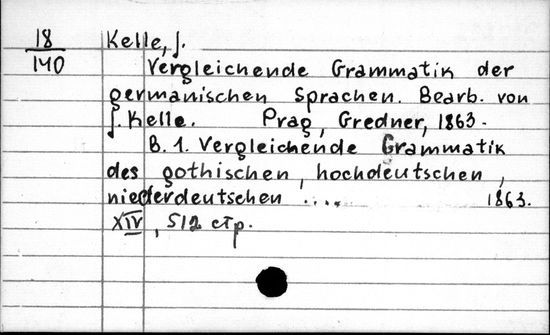 18
140
Kelle, J.
Vergleichende Grammatik der
germanischen Sprachen. Bearb. von
J. Kelle. Prag, Gredner, 1863.
B. 1. Vergleichende Grammatik
des gothischen, hochdeutschen,
niederdeutschen .... 1863.
XIV, 512 стр.